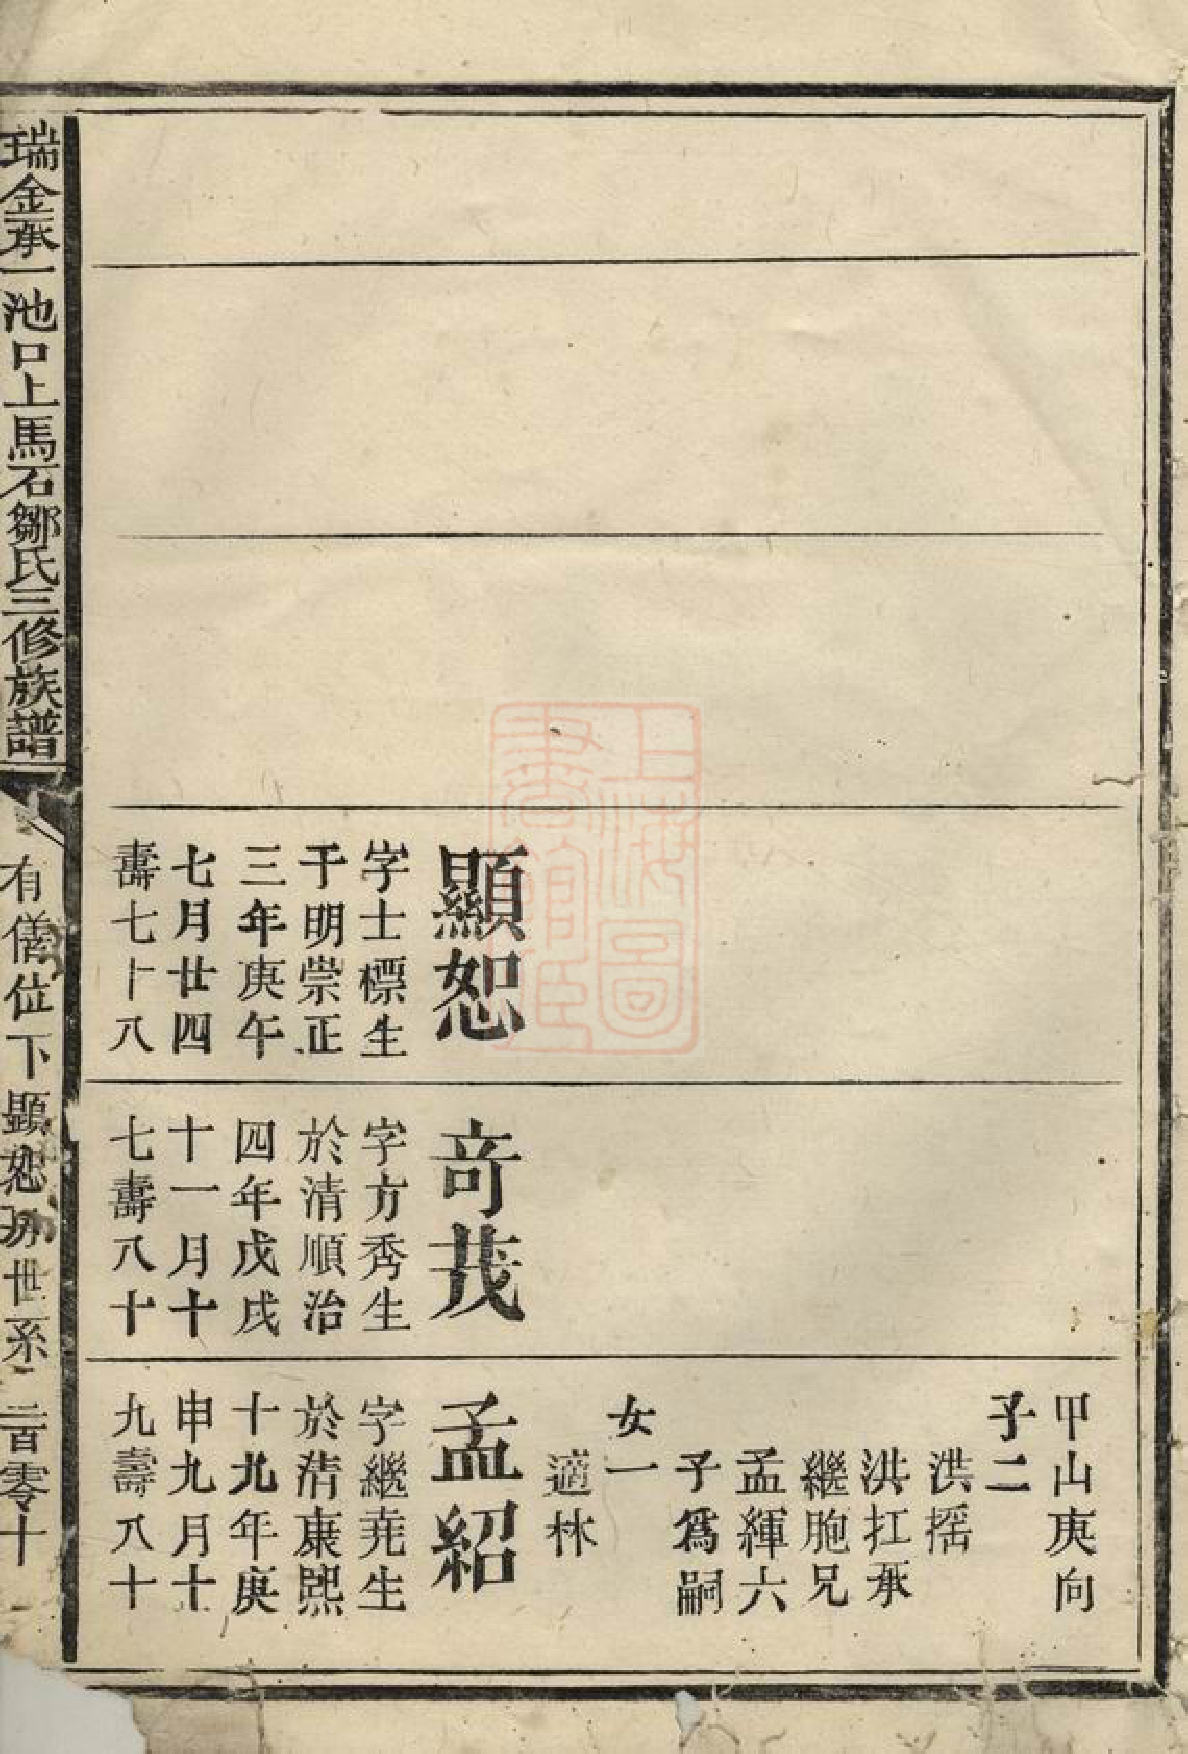 顯恕
字士標生
于明崇正
三年庚午
七月廿四
壽七十八
奇茂
字方秀生
於清順治
四年戊戌
十一月十
七壽八十
甲山庚向
子二
洪摇
洪扛承
繼胞兄
孟緷六
子爲嗣
女一
適林
孟紹
字繼堯生
於清康熙
十九年庚
申九月十
九壽八十
瑞金承一池口上馬石鄒氏三修族譜
有儀位下顯恕房世系
二百零十
上海圖
書館臧